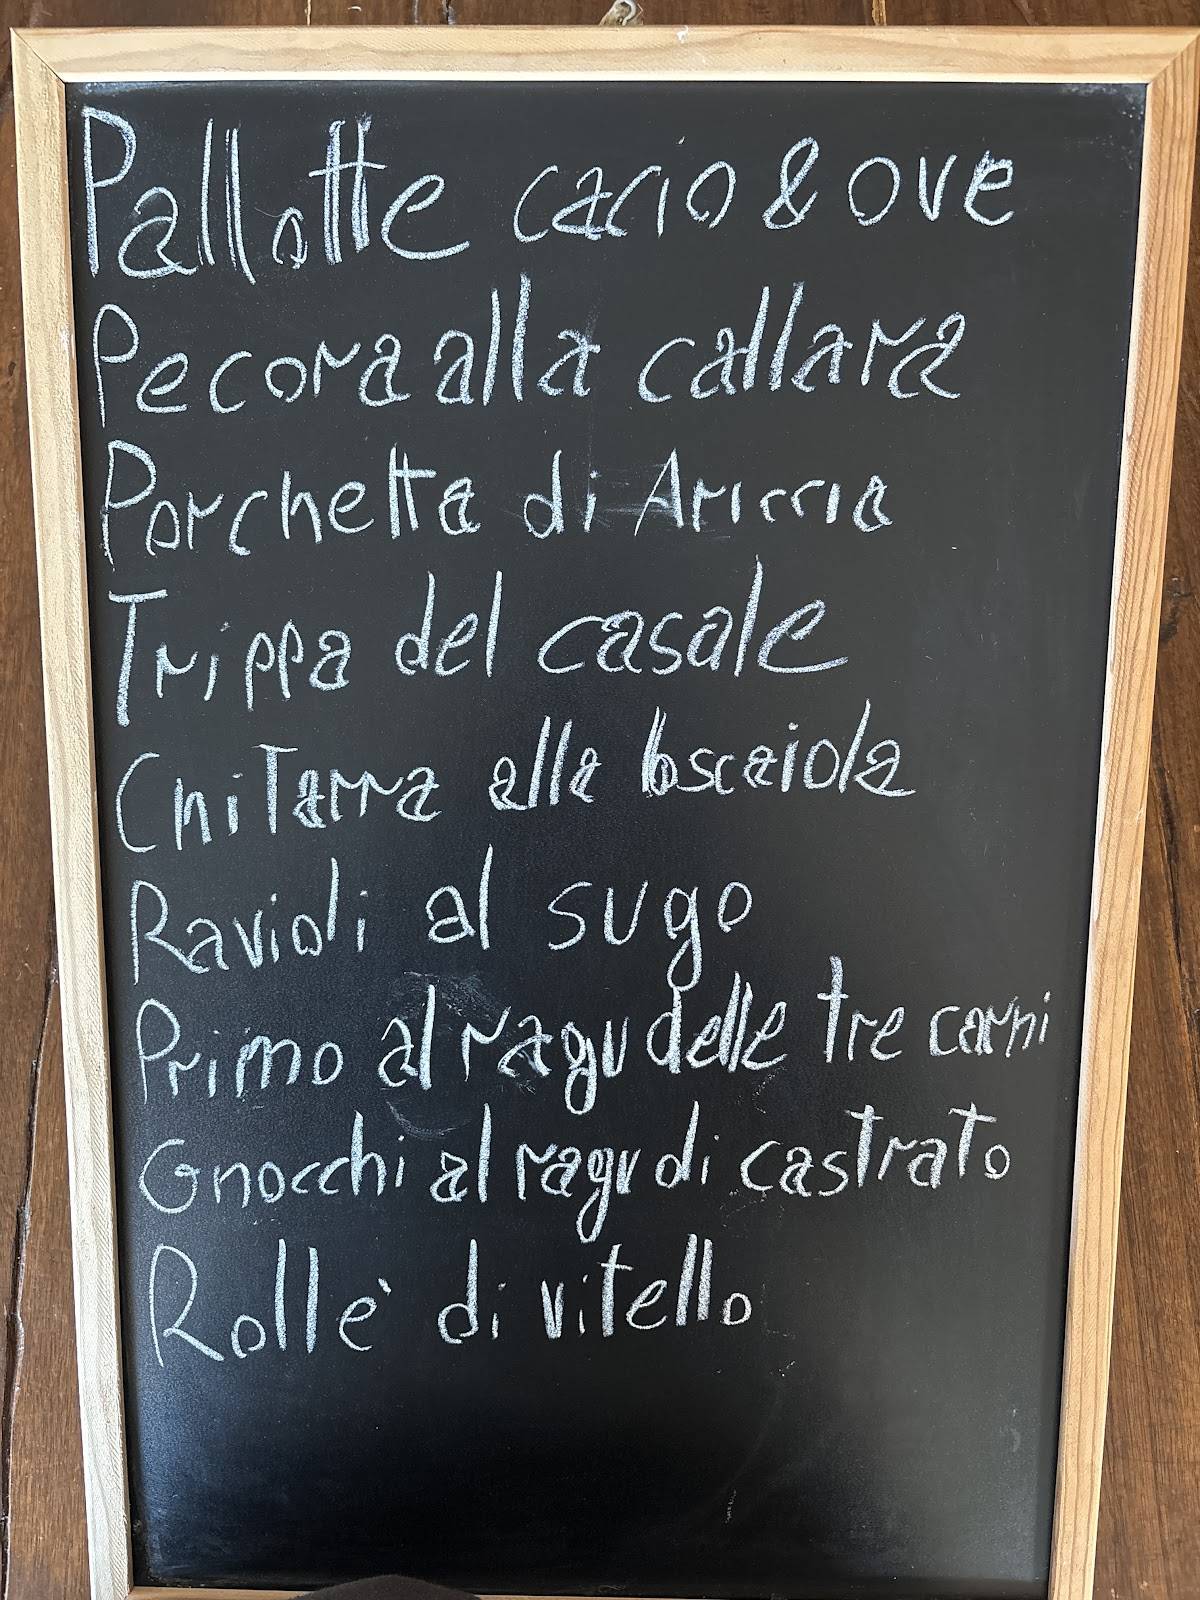 Pallotte cacio & ove
Pecora alla callara
Porchetta di Ariccia
Trippa del casale
Chitarra alla boscaiola
Ravioli al sugo
Primo al ragu delle tre carni
Gnocchi al ragu di castrato
Rolle' di vitello